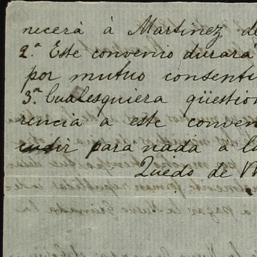 necerá á Martinez de
2.ª Este convenio durará
por mutuo consenti
3.ª Cualesquiera qüestion
rencia á este conven
cudir para nada á lo
Quedo de V